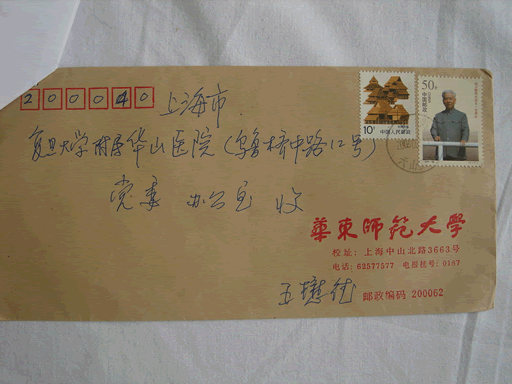 200040
上海市
复旦大学附属华山医院（乌鲁木齐中路12号）
党委 办公室 收
華東师范大学
校址：上海中山北路3663号
电话：62577577 电报挂号：0187
邮政编码 200062
50分
中国邮政
10分
中国人民邮政